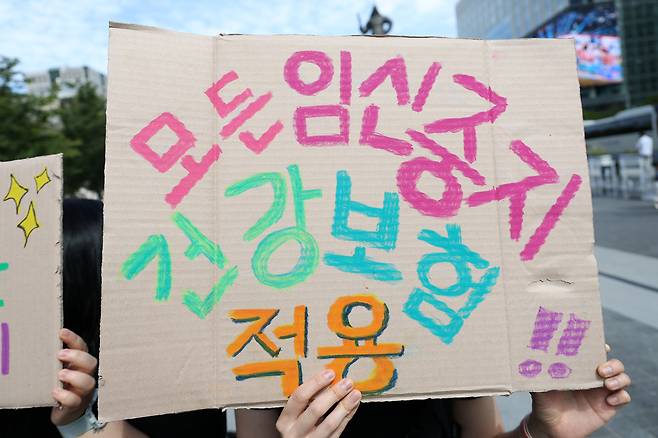 모든 임신중지
건강보험
적용
!!